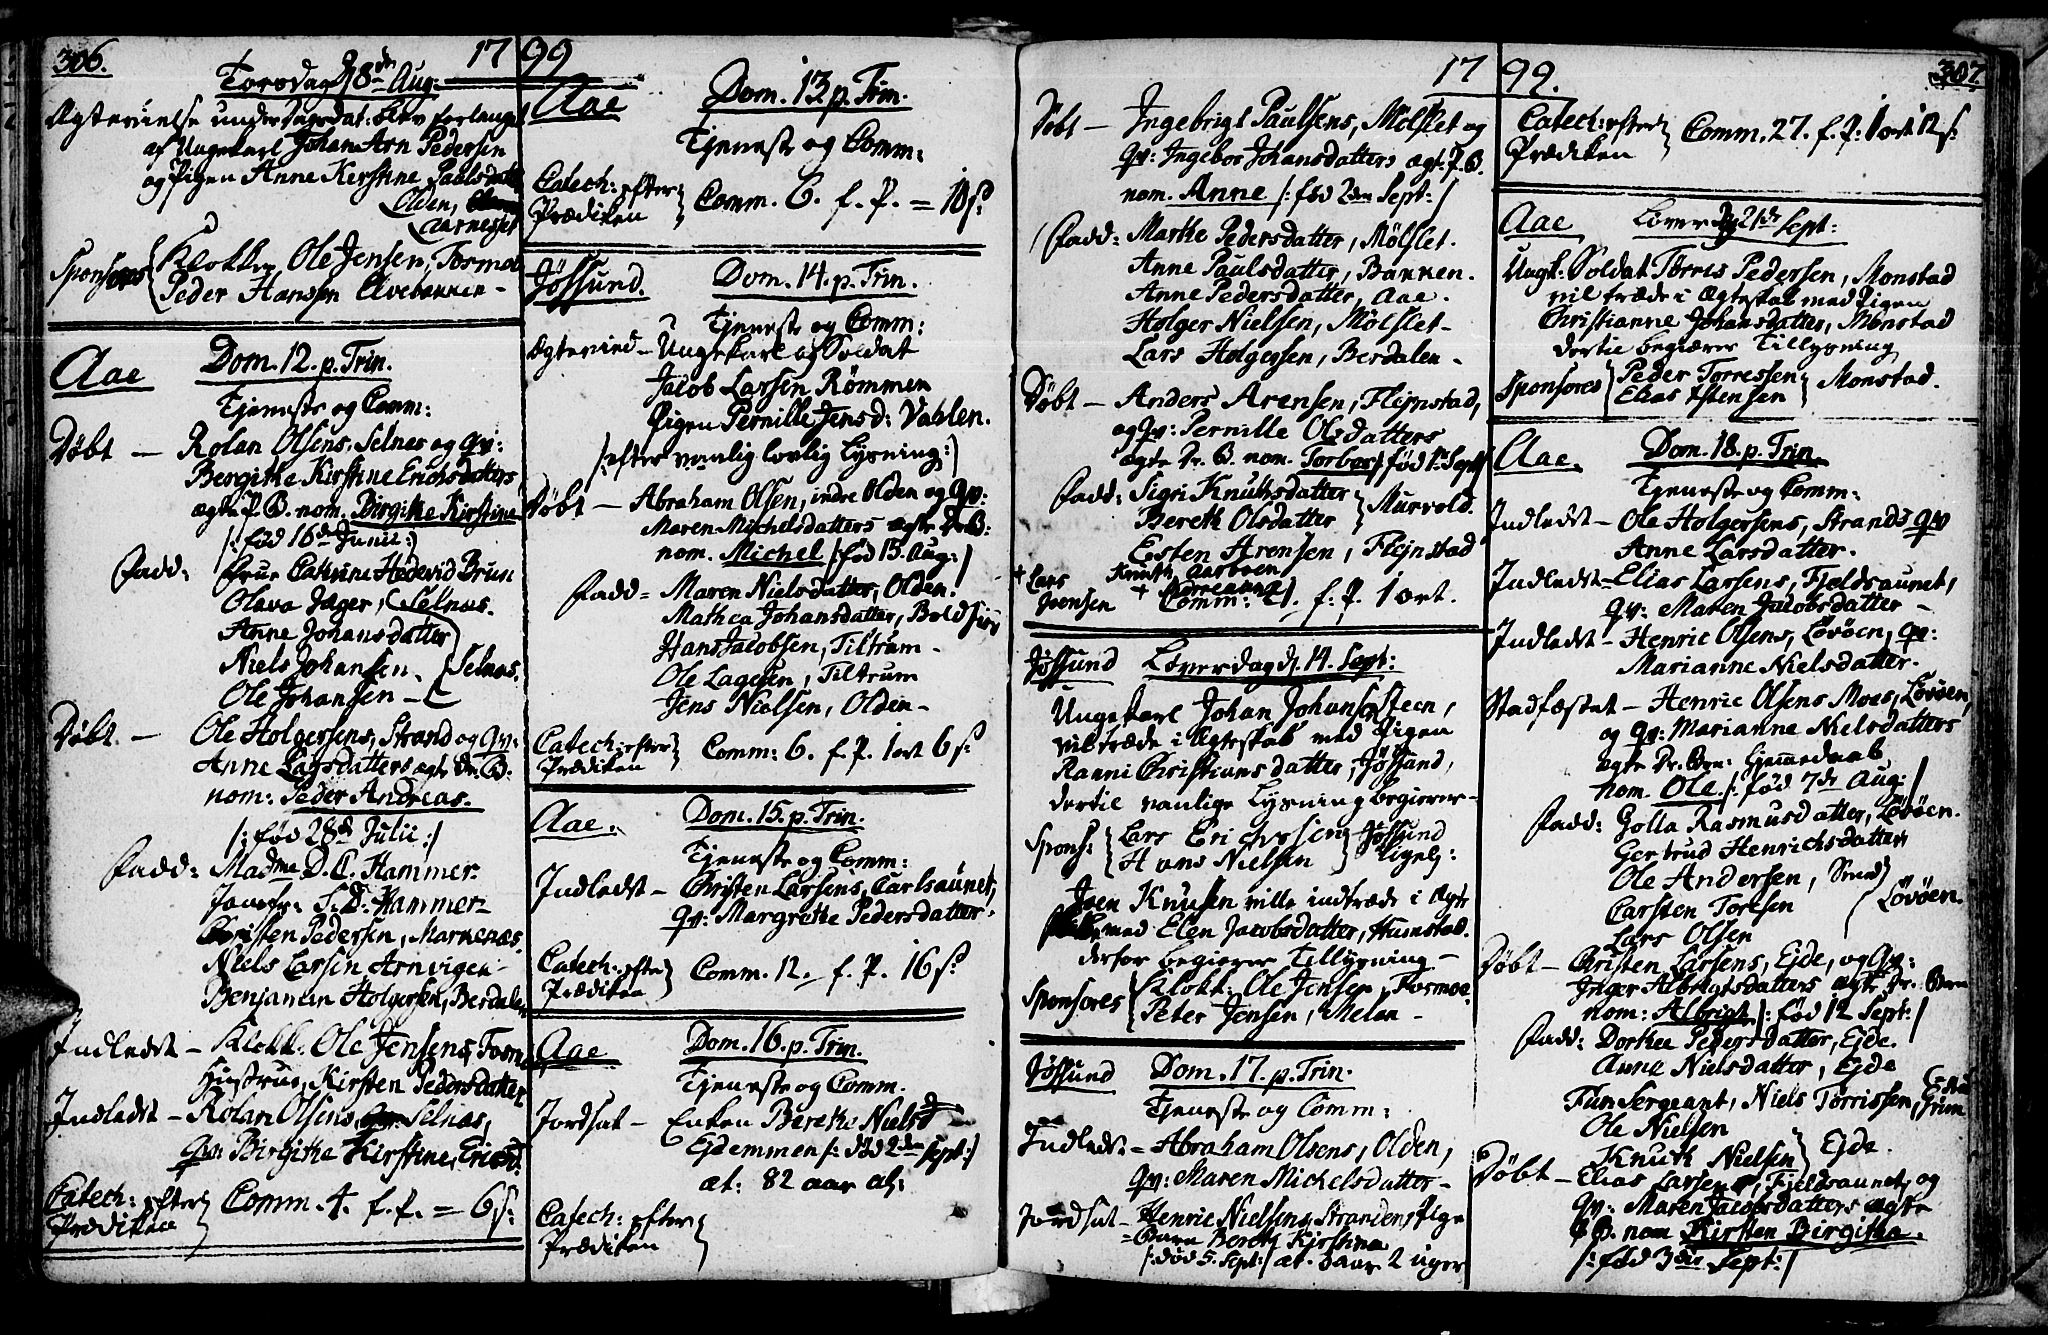 306.
17 99
Torsdag d 8de Aug:
Ægtevielse under Dags dat: blev forlanget
af Ungekarl Johan Arn Pedersen
og Pigen Anne Kirstine Paulsdatter
Olden,
Aarnesset
Sponsores Klokker Ole Jensen, Fosmoe
Peder Hansen Elvebakken -
Aae Dom. 12. p. Trin.
Tjeneste og Comm:
Døbt - Rolan Olsens, Selnes og qv:
Bergithe Kirstine Erichsdatters
ægte P. B. nom. Birgithe Kirstine
/: fød 16de Junii :/
Fadd: Frue Catrine Hedevid Brun
Olava Jæger, Selnæs.
Anne Johansdatter
Niels Johansen. Selnæs.
Ole Johansen -
Døbt. - Ole Holgersens, Strand og qv:
Anne Larsdatters ægte Dr. B:
nom: Peder Andreas.
/: fød 28de Julii :/
Fadd: Madme D. C. Hammer
Jomfr: S. D. Hammer
Christen Pedersen, Marknæs
Niels Larsen Arnvigen -
Benjamin Holgersen, Berdalen
Indledst - Klokk: Ole Jensens, Fosmoe
Hustrue, Kirsten Pedersdatter
Indledst - Rolan Olsens, Selnæs,
qv: Birgithe Kirstine, Ericsd:
Catech: efter Prædiken } Comm. 4. f. P. = 6 s:
Aae Dom. 13 p. Trin.
Tjeneste og Comm:
Catech: efter Prædiken } Comm. 6. f. P. = 10 s:
Jøssund. Dom. 14. p. Trin.
Tjeneste og Comm:
Ægtevied - Ungekarl og Soldat
Jacob Larsen Rømmen
Pigen Pernille Jensd: Vahlen.
/: efter vanlig lovlig Lysning :/
Døbt - Abraham Olsen, indre Olden og qv:
Maren Michelsdatters ægte Dr. B:
nom. Michel /: fød 15. Aug: /
Fadd = Maren Nielsdatter, Olden.
Mathea Johansdatter, Bold
Hans Jacobsen, Tiltrum -
Ole Lagesen, Tiltrum
Jens Nielsen, Olden -
Catech: efter Prædiken } Comm: 6. f. P. 1 ort 6 s:
Aae. Dom. 15. p. Trin.
Tjeneste og Comm:
Indledst - Christen Larsens, Carlsaunet,
qv: Margrethe Pedersdatter.
Catech: efter Prædiken } Comm. 12. f. P. 16 s:
Aae Dom. 16. p. Trin.
Tjeneste og Comm.
Jordsat - Enken Berethe Nielsd
Ejdemmen /: død 2den Sept: /
æt: 82 aar al:
Catech: efter
Prædiken
17 99.
307.
Døbt - Ingebrigt Paulsens, Mølslet og
qv: Ingebor Johansdatters ægt: P. B.
nom. Anne /: fød 2den Sept: /
Fadd: Marthe Pedersdatter, Mølslet.
Anne Paulsdatter, Bakken.
Anne Pedersdatter, Aae.
Holger Nielsen, Mølslet -
Lars Holgersen, Berdalen -
Døbt - Anders Arensen, Flejnstad,
og qv: Pernille Olsdatters
ægte Dr. B. nom. Torber /: fød 1. Sept /
Fadd: Sigri Knuthsdatter
Bereth Olsdatter } Murvold.
Esten Arensen, Flejnstad
+ Lars Joensen
Knuth Aarsoen
+
Comm: 21. f: P. 1 ort.
Jøssund Løverdag d. 14. Sept:
Ungekarl Johan Johansen Steen,
vil træde i Ægteskab med Pigen
Ranni Christiansdatter, Jøssund,
dertil vanlige Lysning begierer -
Spons: Lars Erichsen Jøssund
Hans Nielsen ligel:
Joen Knusen ville indtræde i Ægte
med Elen Jacobsdatter, Humstad.
derfor begierer Tillysning -
Sponsores Klokk: Ole Jensen, Fosmoe.
Peter Jensen, Melan -
Jøssund Dom. 17. p. Trin.
Tjeneste og Comm:
Indledst - Abraham Olsens, Olden,
qv: Maren Michelsdatter -
Jordsat - Henric Nielsens, Stranden, Pige
= Barn Bereth Kirstine
/: død 5. Sept: / æt. 3 aar 2 uger
Catech: efter Prædiken } Comm. 27. f. P: 1 ort 12 s:
Aae Løverd. 21de Sept:
Ungk: Soldat Tørris Pedersen, Monstad
vil træde i Ægteskab med Pigen
Christianne Johansdatter, Monstad
dertil begierer Tillysning
Sponsores Peder Torressen
Elias Estensen } Monstad.
Aae. Dom. 18. p. Trin.
Tjeneste og Comm:
Indledst - Ole Holgersens, Strands qv
Anne Larsdatter.
Indledst - Elias Larsens, Fjeldsaunet,
qv: Maren Jacobsdatter -
Indledst - Henric Olsens, Løvøen, qv:
Marianne Nielsdatter.
Stadfæstet - Henric Olsens Moes, Løvøen,
og qv: Marianne Nielsdatters
ægte Dr. Brn: hjemmedaab
Nom. Ole. /: fød 7de Aug: /
Fadd: Golla Rasmusdatter, Løvøen.
Gertrud Henrichsdatter
Ole Andersen, Smed
Carsten Toresen Løvøen.
Lars Olsen
Døbt - Christen Larsens, Ejde, og qv:
Inger Albregtsdatters ægte Dr. Brn
nom: Albrigt /: fød 12 Sept: /
Fadd: Dorthea Pedersdatter, Ejde.
Anne Nielsdatter, Ejde
Fun Sergeant, Niels Torrissen,
Ole Nielsen
Knuth Nielsen } Ejde.
Døbt - Elias Larsens, Fjeldsaunet, og
qv: Maren Jacobsdatters ægte
P. B. nom Kirsten Birgithe.
/: fød 3die Sept: /